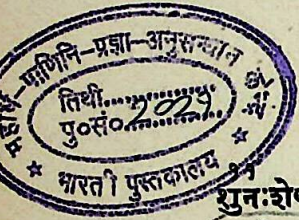 महर्षि-पाणिनि-प्रज्ञा-अनुसन्धान
तिथी..............
पु०सं०...2029...
भारती पुस्तकालय
शुनःशे